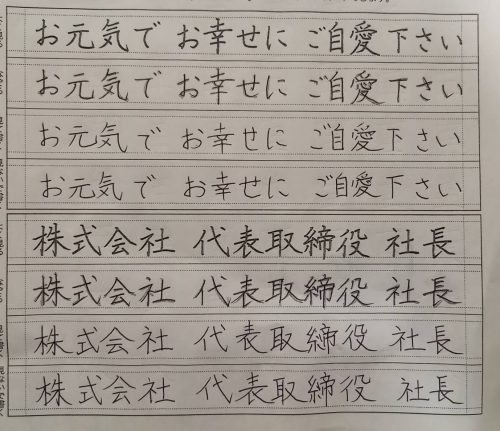 お元気で お幸せに ご自愛下さい
お元気で お幸せに ご自愛下さい
お元気で お幸せに ご自愛下さい
お元気で お幸せに ご自愛下さい
株式会社 代表取締役 社長
株式会社 代表取締役 社長
株式会社 代表取締役 社長
株式会社 代表取締役 社長